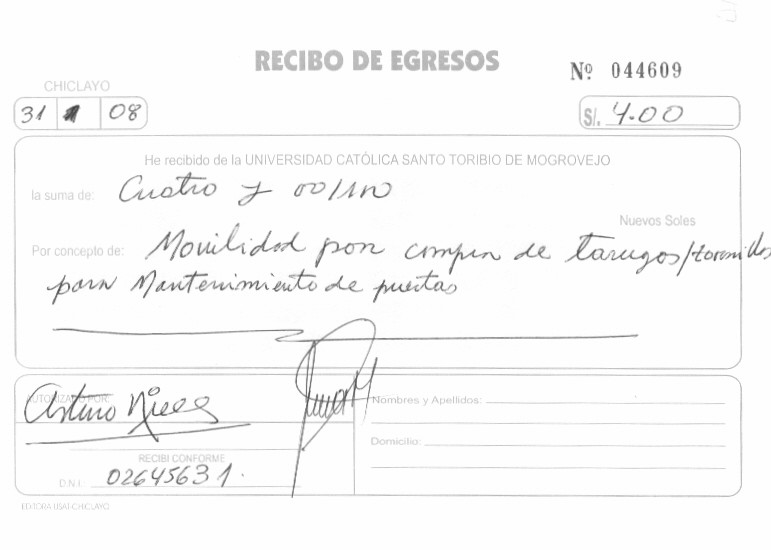 RECIBO DE EGRESOS
Nº 044609
CHICLAYO
31 08
S/. 4.00
He recibido de la UNIVERSIDAD CATÓLICA SANTO TORIBIO DE MOGROVEJO
la suma de: Cuatro y 00/100
Nuevos Soles
Por concepto de: Movilidad por compra de tarugos/tornillos
para Mantenimiento de puertas
AUTORIZADO POR:
Arturo
Nombres y Apellidos:
Domicilio:
RECIBI CONFORME
D.N.I. 02645631.
EDITORA LISAT-CHICLAYO